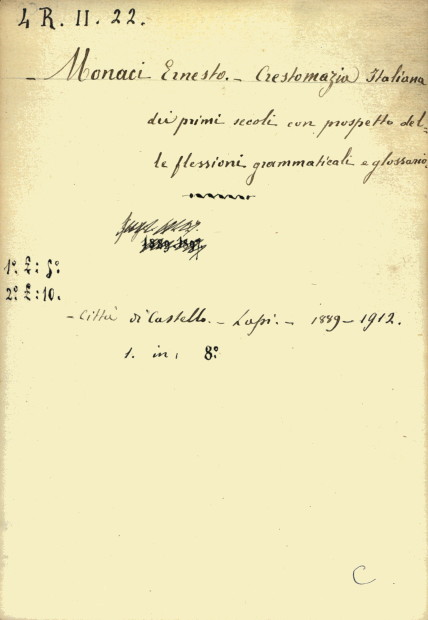 4 R. 11. 22.
- Monaci Ernesto. - Crestomazia Italiana
dei primi secoli con prospetto del=
le flessioni grammaticali e glossario.
1º. £: 5º.
2º. £: 10.
- Città di Castello. - Lapi. - 1889 - 1912.
1. in, 8º.
C